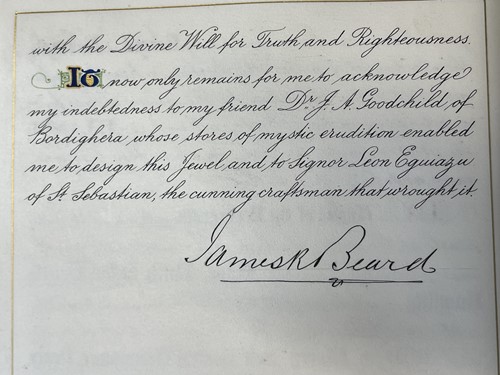 with the Divine Will for Truth and Righteousness.
It now only remains for me to acknowledge
my indebtedness to my friend Dr. J. A. Goodchild, of
Bordighera, whose stores of mystic erudition enabled
me to design this Jewel, and to Signor Leon Eguiazu
of St. Sebastian, the cunning craftsman that wrought it.
James R Beard